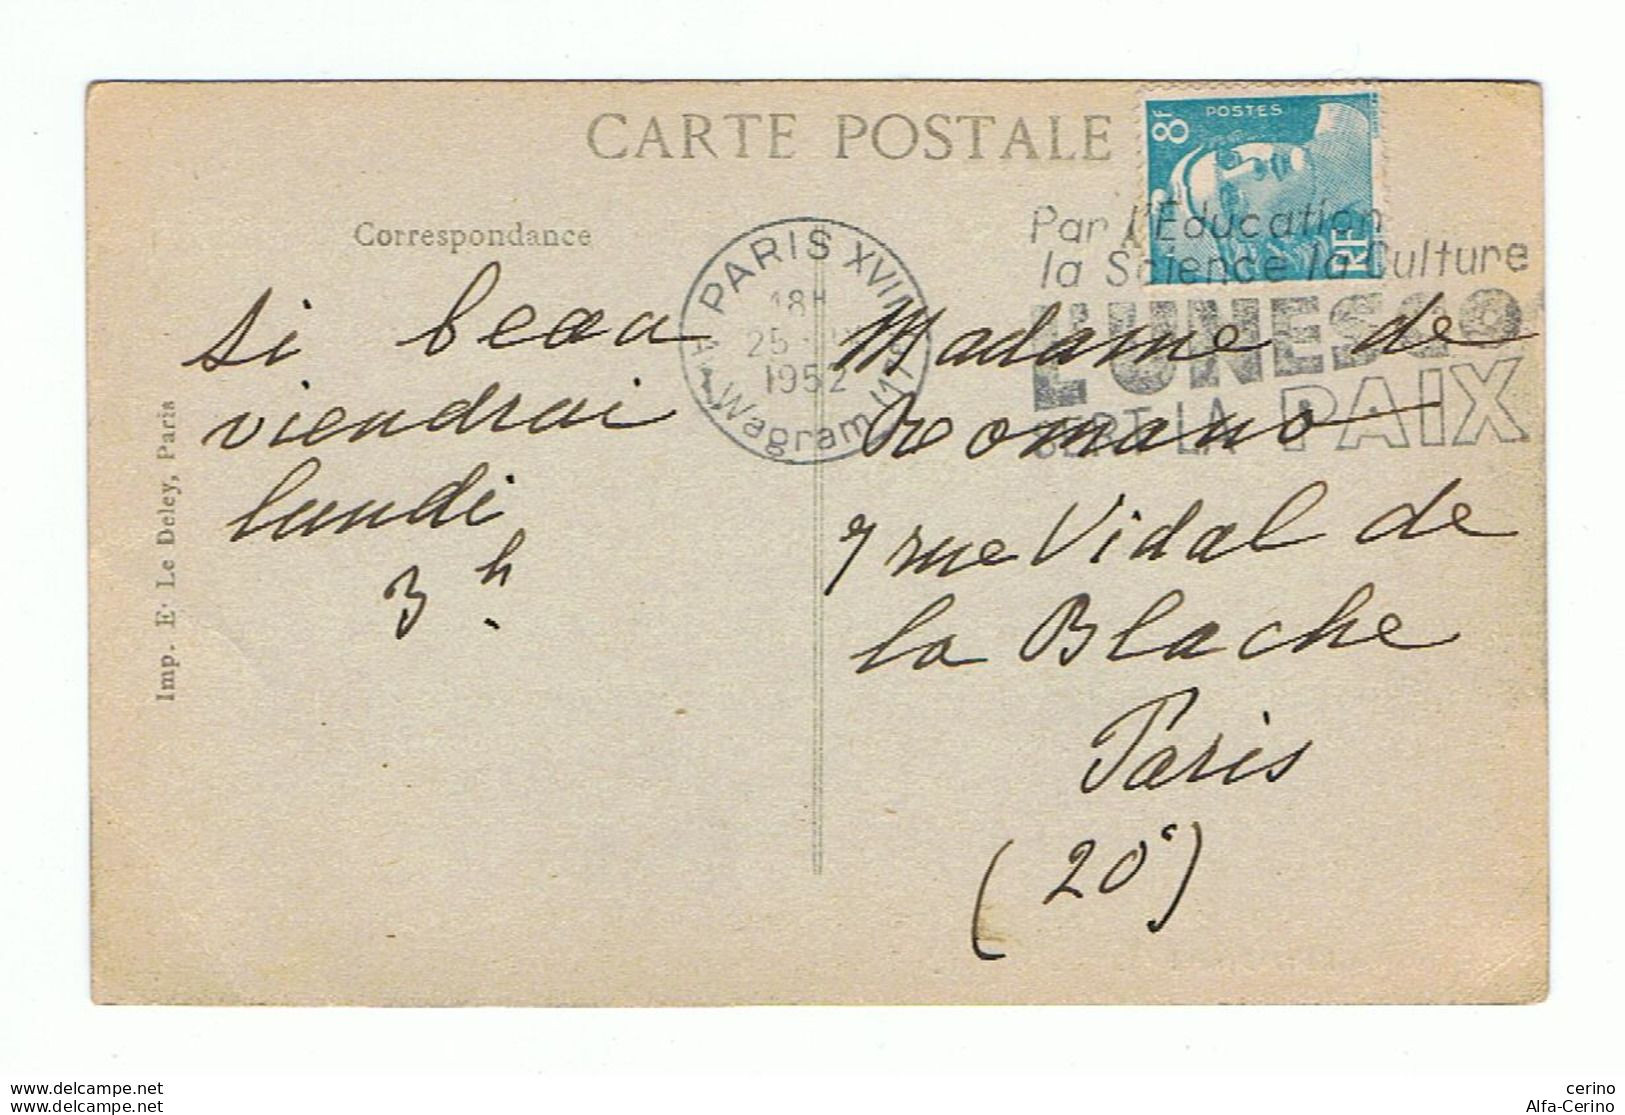 CARTE POSTALE
8F
POSTES
RF
Par l'Éducation
la Science la Culture
L'UNESCO
SERT LA PAIX
PARIS XVII
18H
25
1952
Av. Wagram
Correspondance
si beau
viendrai
lundi
3h.
Madame de
Romano
7 rue Vidal de
la Blache
Paris
(20e)
Imp. E. Le Deley, Paris
www.delcampe.net
www.delcampe.net
cerino
Alfa-Cerino